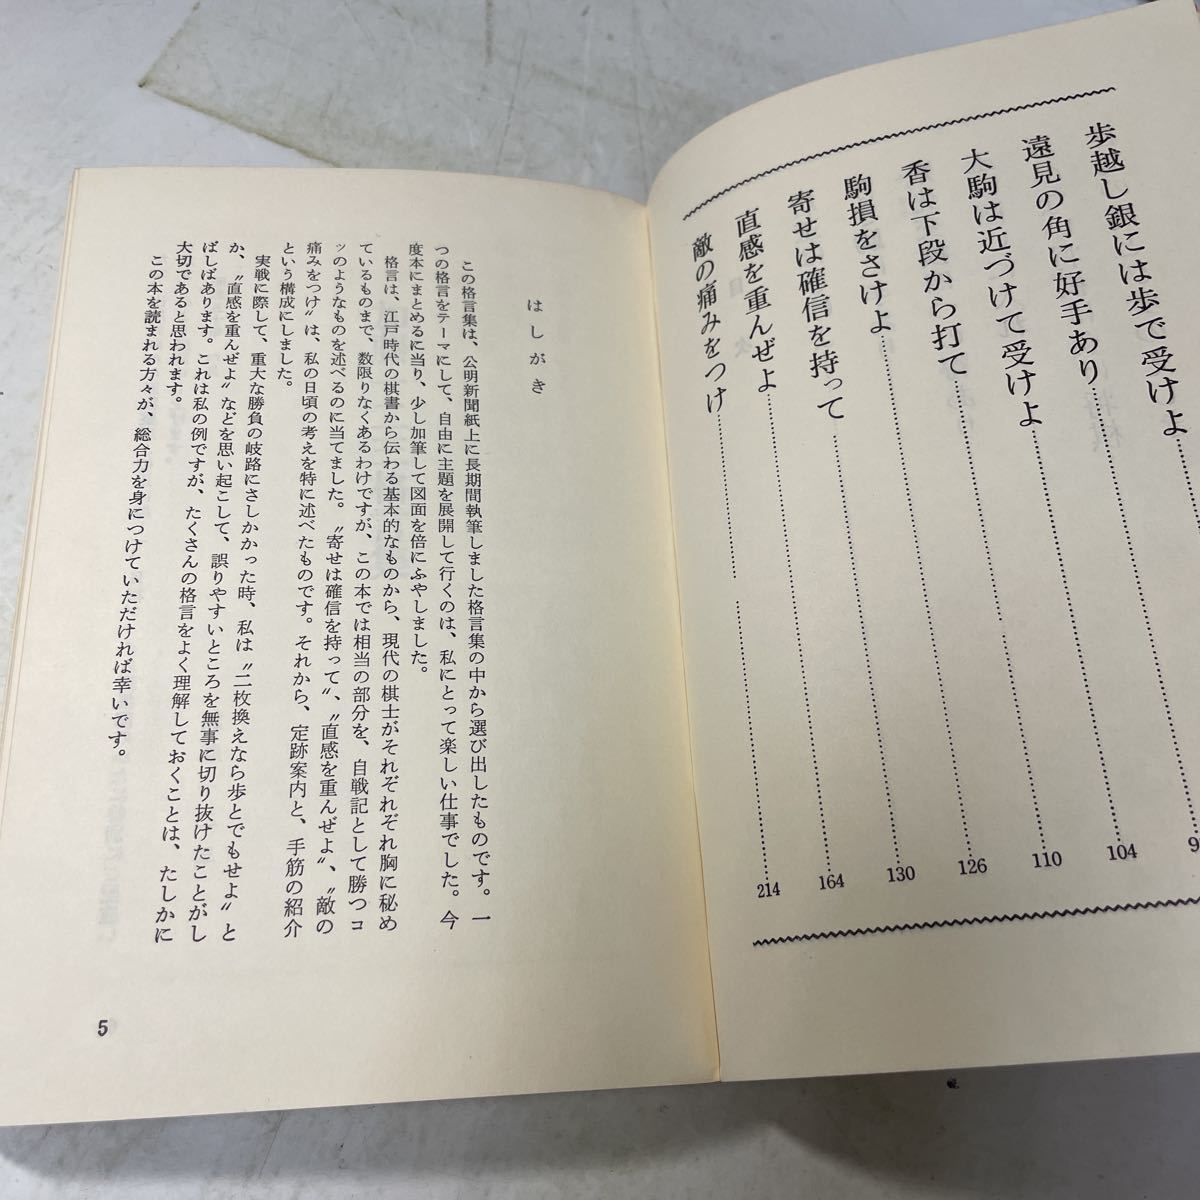 歩越し銀には歩で受けよ
遠見の角に好手あり
大駒は近づけて受けよ 104
香は下段から打て 110
駒損をさけよ 126
寄せは確信を持って 130
直感を重んぜよ 164
敵の痛みをつけ 214
はしがき
この格言集は、公明新聞紙上に長期間執筆しました格言集の中から選び出したものです。一
つの格言をテーマにして、自由に主題を展開して行くのは、私にとって楽しい仕事でした。今
度本にまとめるに当り、少し加筆して図面を倍にふやしました。
格言は、江戸時代の棋書から伝わる基本的なものから、現代の棋士がそれぞれぞれ胸に秘め
ているものまで、数限りなくあるわけですが、この本では相当の部分を、自戦記として勝つコ
ッのようなものを述べるのに当てました。〝寄せは確信を持って〟、〝直感を重んぜよ〟、〝敵の
痛みをつけ〟は、私の日頃の考えを特に述べたものです。それから、定跡案内と、手筋の紹介
という構成にしました。
実戦に際して、重大な勝負の岐路にさしかかった時、私は〝二枚換えなら歩とでもせよ〟と
か、〝直感を重んぜよ〟などを思い起こして、誤りやすいところを無事に切り抜けたことがし
ばしばあります。これは私の例ですが、たくさんの格言をよく理解しておくことは、たしかに
大切であると思われます。
この本を読まれる方々が、総合力を身につけていただければ幸いです。
5